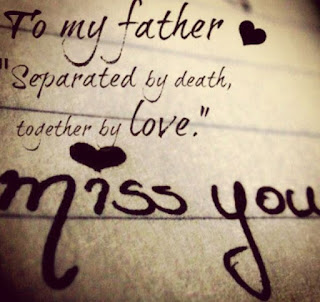 To my father
"Separated by death,
together by love."
miss you